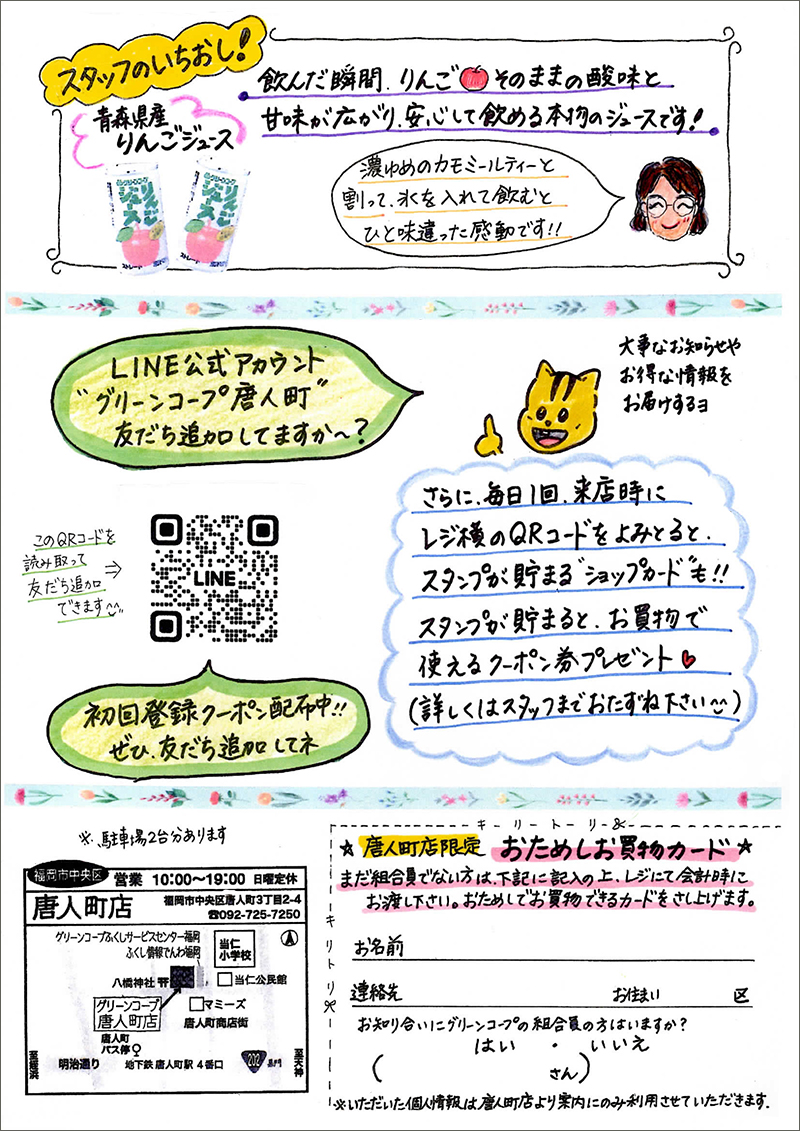 スタッフのいちおし!
青森県産
りんごジュース
飲んだ瞬間、りんごそのままの酸味と
甘味が広がり、安心して飲める本物のジュースです!
りんごジュース
ストレート
りんごジュース
ストレート
濃ゆめのカモミールティーと
割って、氷を入れて飲むと
ひと味違った感動です!!
LINE公式アカウント
"グリーンコープ唐人町"
友だち追加してますか〜?
大事なお知らせや
お得な情報を
お届けするヨ
このQRコードを
読み取って
友だち追加
できます
LINE
さらに、毎日1回、来店時に
レジ横のQRコードをよみとると、
スタンプが貯まる"ショップカード"も!!
スタンプが貯まると、お買物で
使えるクーポン券プレゼント
(詳しくはスタッフまでおたずね下さい)
初回登録クーポン配布中!!
ぜひ、友だち追加してネ
※駐車場2台分あります
福岡市中央区
営業 10:00〜19:00 日曜定休
唐人町店
福岡市中央区唐人町3丁目2-4
☎092-725-7250
グリーンコープふくしサービスセンター福岡
ふくし情報でんわ福岡
当仁
小学校
八橋神社
当仁公民館
グリーンコープ
唐人町店
マミーズ
唐人町商店街
唐人町
バス停
至姪浜
明治通り
地下鉄 唐人町駅 4番口
202
至天神
キリトリ
キリトリ
★唐人町店限定 おためしお買物カード★
まだ組合員でない方は、下記に記入の上、レジにて会計時に
お渡し下さい。おためしでお買物できるカードをさし上げます。
お名前
連絡先 お住まい 区
お知り合いにグリーンコープの組合員の方はいますか?
はい ・ いいえ
( さん)
※いただいた個人情報は唐人町店より案内にのみ利用させていただきます.